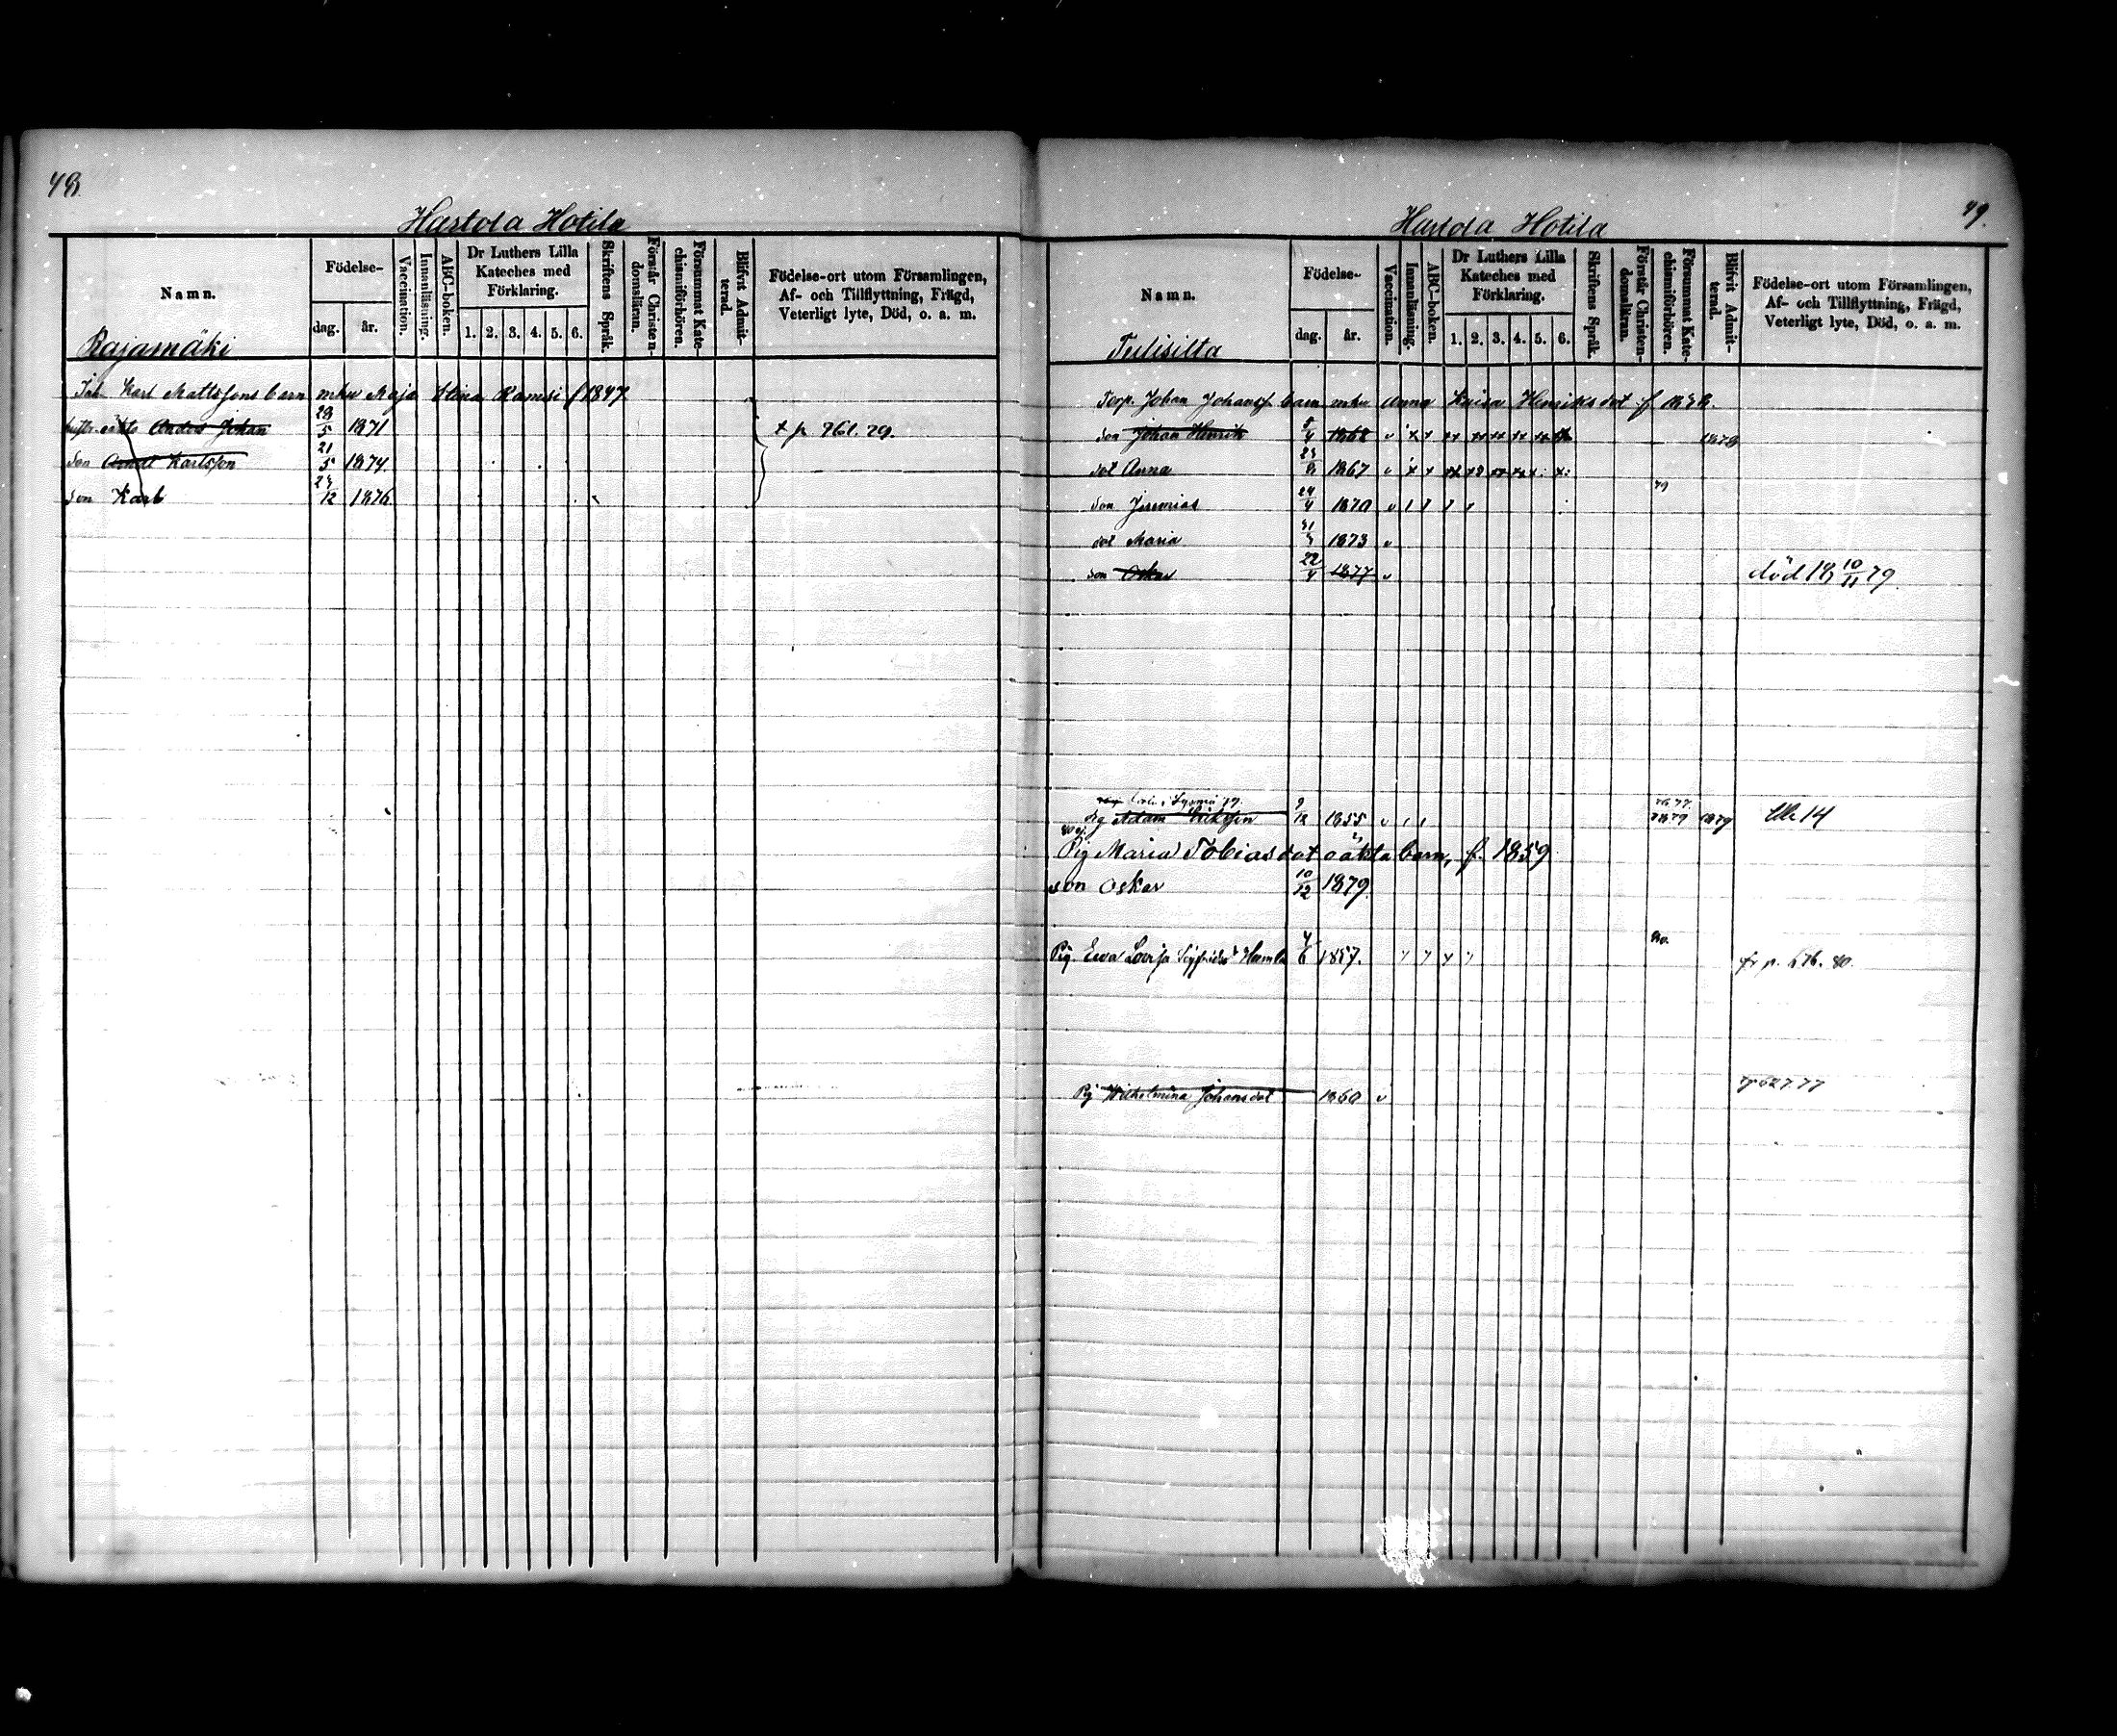 48.
Hartola Hotila
Namn.
Födelse-
dag.
år.
Vaccination.
Innanläsning.
ABC-boken.
Dr Luthers Lilla Kateches med Förklaring.
1. 2. 3. 4. 5. 6.
Skriftens Språk.
Förstår Christen-domsläran.
Försummat Kate-chismiförhören.
Blifvit Admit-terad.
Födelse-ort utom Församlingen,
Af- och Tillflyttning, Frägd,
Veterligt lyte, Död, o. a. m.
Rajamäki
Karl Mattssons barn mhu Maja Stina Ramsi f 1847
Anders Johan 28/5 1871 t p 761. 79.
son Karlsson 21/5 1874
son Karl 12 1876
49.
Hartola Hotila
Namn.
Födelse-
dag.
år.
Vaccination.
Innanläsning.
ABC-boken.
Dr Luthers Lilla Kateches med Förklaring.
1. 2. 3. 4. 5. 6.
Skriftens Språk.
Förstår Christen-domsläran.
Försummat Kate-chismiförhören.
Blifvit Admit-terad.
Födelse-ort utom Församlingen,
Af- och Tillflyttning, Frägd,
Veterligt lyte, Död, o. a. m.
Tulisilta
Torp. Johan Johanss. barn mhu Anna Kaisa Henriksdot f
son Johan Henrik 1878
dot Anna 1867
79
son Jeremias 24/4 1870
dot Maria 1873
son Oskar 22/4 1877 död 18 10/11 79.
drg Adam Eriksson 9/12 1855 1879 1879 14
Pig Maria Tobiasdot oäkta barn, f. 1859
son Oskar 10/12 1879
80.
Pig. Ewa Lovisa 1857. fr p. 676. 80.
Pig Wilhelmina Johansdot 1860 627.77